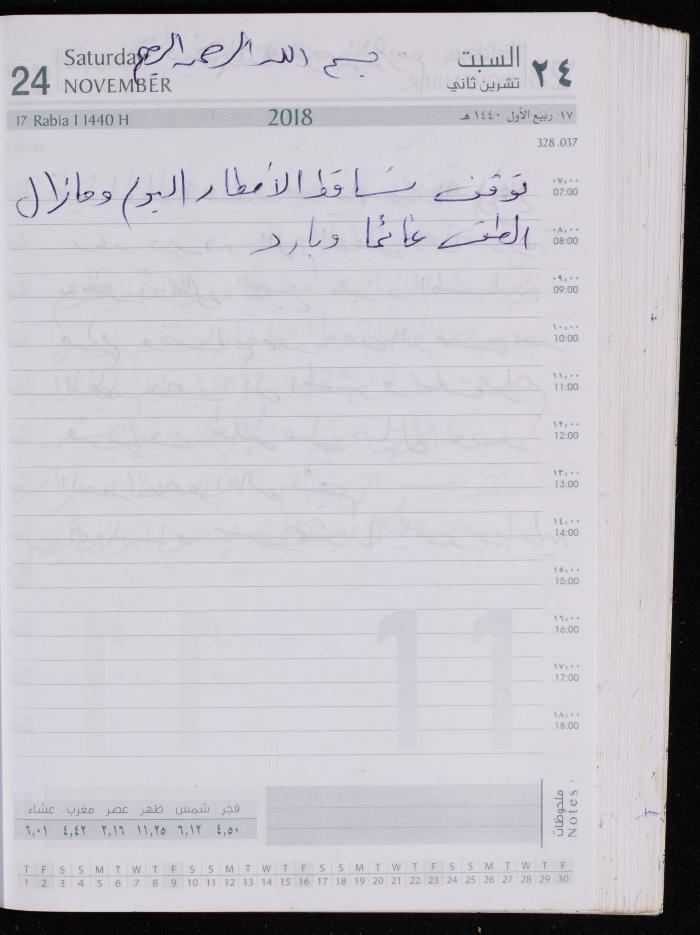 بسم الله الرحمن الرحيم
Saturday السبت
24 NOVEMBER تشرين ثاني ٢٤
17 Rabia I 1440 H 2018 ١٧ ربيع الأول ١٤٤٠ هـ
328.037
٠٧,٠٠
07:00
توقف تساقط الأمطار اليوم ومازال
٠٨,٠٠
08:00
الطقس غائما وبارد
٠٩,٠٠
09:00
١٠,٠٠
10:00
١١,٠٠
11:00
١٢,٠٠
12:00
١٣,٠٠
13:00
١٤,٠٠
14:00
١٥,٠٠
15:00
١٦,٠٠
16:00
١٧,٠٠
17:00
١٨,٠٠
18:00
11
ملحوظات
Notes
فجر شمس ظهر عصر مغرب عشاء
٤,٥٠ ٦,١٢ ١١,٢٥ ٢,١٦ ٤,٤٢ ٦,٠١
T F S S M T W T F S S M T W T F S S M T W T F S S M T W T F
1 2 3 4 5 6 7 8 9 10 11 12 13 14 15 16 17 18 19 20 21 22 23 24 25 26 27 28 29 30